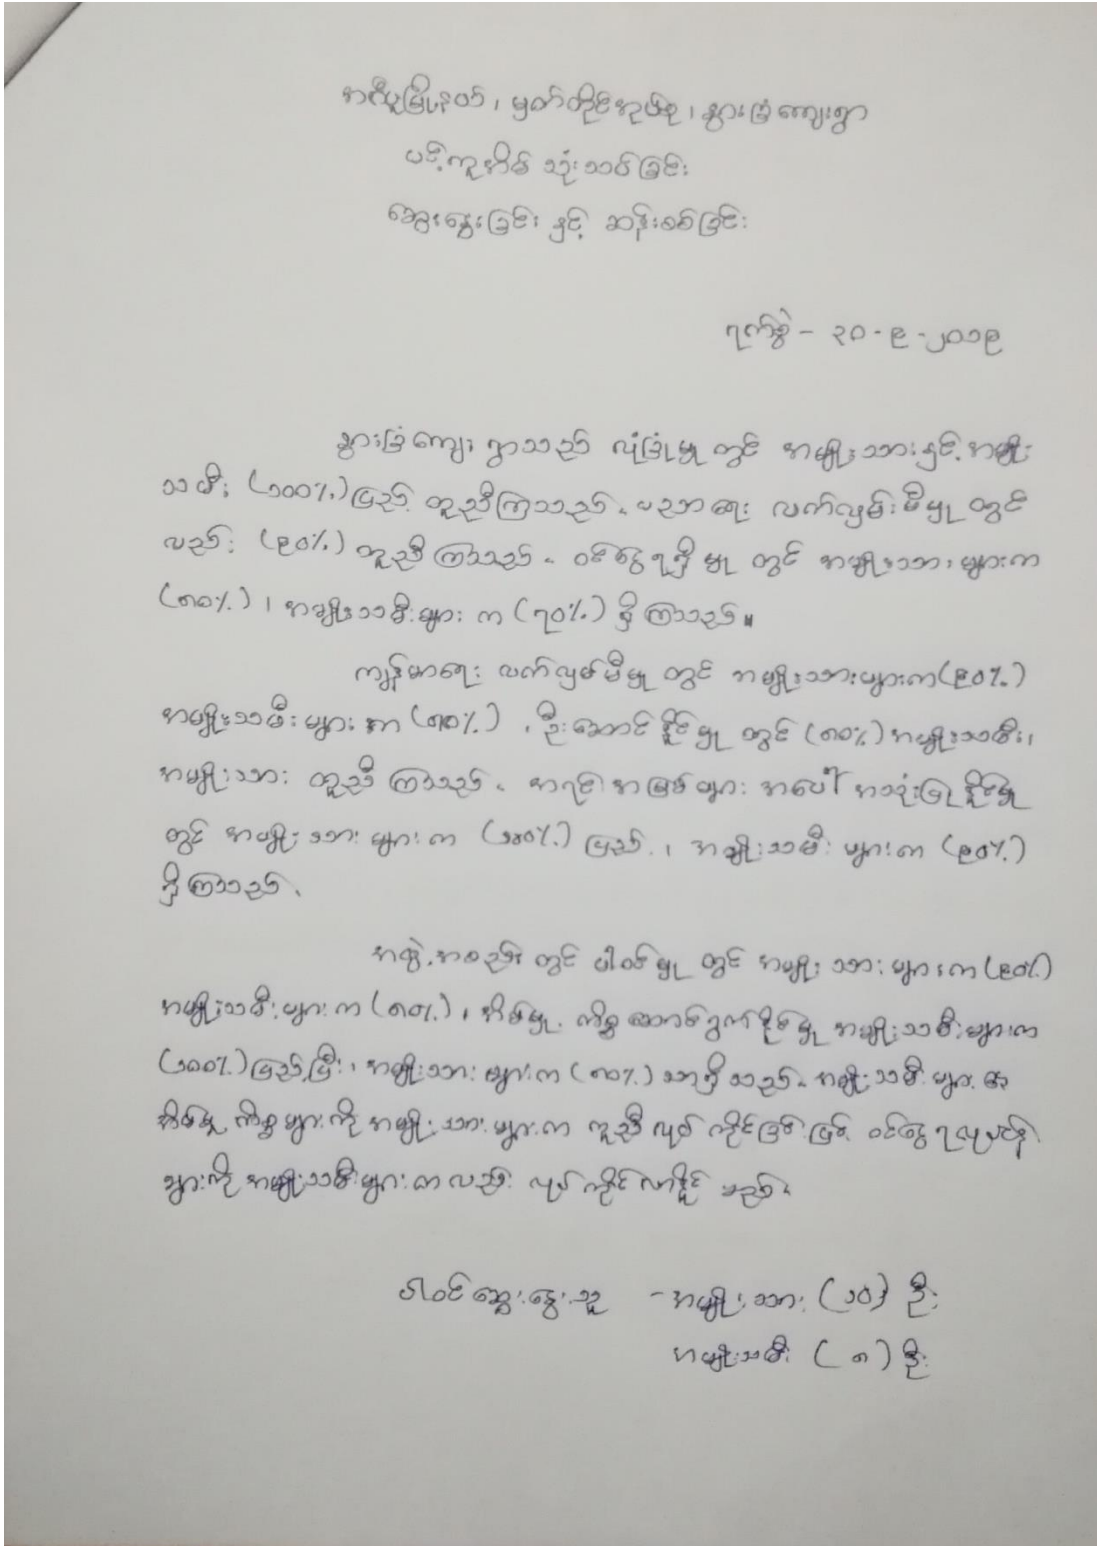 အငပူမြို့နယ်၊ မှတ်တိုင်အုပ်စု၊ နွားခြံကျေးရွာ
ပင့်ကူအိမ် သုံးသပ်ခြင်း
ဆွေးနွေးခြင်း နှင့် ဆန်းစစ်ခြင်း
ရက်စွဲ - ၃၀-၉-၂၀၁၉
နွားခြံကျေးရွာသည် လုံခြုံမှု တွင် အမျိုးသားနှင့် အမျိုး
သမီး (၁၀၀%) ပြည့် တူညီကြသည်။ ပညာရေး လက်လှမ်းမီမှု တွင်
လည်း (၉၀%) တူညီကြသည်။ ဝင်ငွေရရှိမှု တွင် အမျိုးသားများက
(၈၀%)၊ အမျိုးသမီးများ က (၇၀%) ရှိကြသည်။
ကျန်းမာရေး လက်လှမ်မီမှု တွင် အမျိုးသားများက(၉၀%)
အမျိုးသမီးများ က (၈၀%)၊ ဦးဆောင်နိုင်မှု တွင် (၈၀%) အမျိုးသမီး၊
အမျိုးသား တူညီကြသည်။ အရင်းအမြစ်များ အပေါ် အသုံးပြုနိုင်မှု
တွင် အမျိုးသားများ က (၁၀၀%) ပြည့်၊ အမျိုးသမီးများက (၉၀%)
ရှိကြသည်။
အဖွဲ့အစည်း တွင် ပါဝင်မှု တွင် အမျိုးသားများက (၉၀%)
အမျိုးသမီးများက (၈၀%)၊ အိမ်မှု ကိစ္စဆောင်ရွက်နိုင်မှု အမျိုးသမီးများက
(၁၀၀%) ပြည့်ပြီး၊ အမျိုးသားများက (၈၀%) သာရှိသည်။ အမျိုးသမီးများ၏
အိမ်မှု ကိစ္စများကို အမျိုးသားများက ကူညီလုပ်ကိုင်ခြင်းဖြင့် ဝင်ငွေရလုပ်ငန်း
များကို အမျိုးသမီးများကလည်း လုပ်ကိုင်လာနိုင် မည်။
ပါဝင်ဆွေးနွေးသူ - အမျိုးသား (၁၀) ဦး
အမျိုးသမီး (၈) ဦး